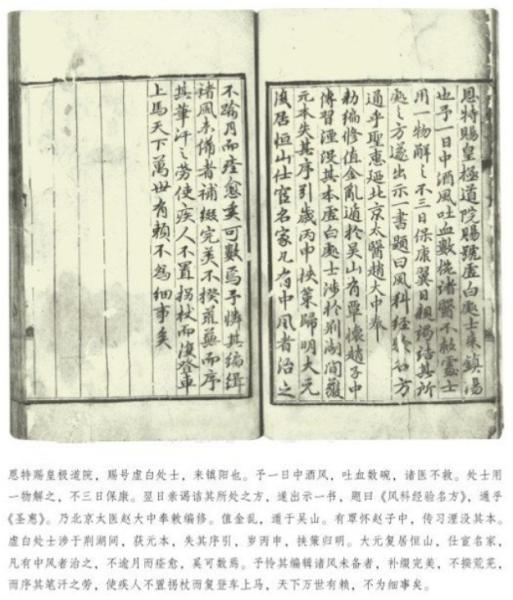 恩特賜皇極道院賜號虛白處士來鎮陽
也予一日中酒風吐血數椀諸醫不救處士
用一物解之不三日保康翼日親謁詰其所
處之方遂出示一書題曰風科經驗名方
通乎聖惠迺北京太醫趙大中奉
勑編修值金亂遁於吳山有覃懷趙子中
傳習湮沒其本虛白處士涉於荊湖間獲
元本失其序引歲丙申挾策歸明大元
復居恒山仕宦名家凡有中風者治之
不踰月而痊愈矣可數焉予憐其編緝
諸風未備者補綴完美不揆荒蕪而序
其筆汗之勞使疾人不置拐杖而復登車
上馬天下萬世有賴不為細事矣
恩特赐皇极道院，赐号虚白处士，来镇阳也。予一日中酒风，吐血数碗，诸医不救。处士用
一物解之，不三日保康。翌日亲谒诘其所处之方，遂出示一书，题曰《风科经验名方》，通乎
《圣惠》。乃北京太医赵大中奉敕编修。值金乱，遁于吴山。有覃怀赵子中，传习湮没其本。
虚白处士涉于荆湖间，获元本，失其序引，岁丙申，扶策归明。大元复居恒山，仕宦名家，
凡有中风者治之，不逾月而痊愈，奚可数焉。予怜其编辑诸风未备者，补缀完美，不揆荒芜，
而序其笔汗之劳，使疾人不置拐杖而复登车上马，天下万世有赖，不为细事矣。